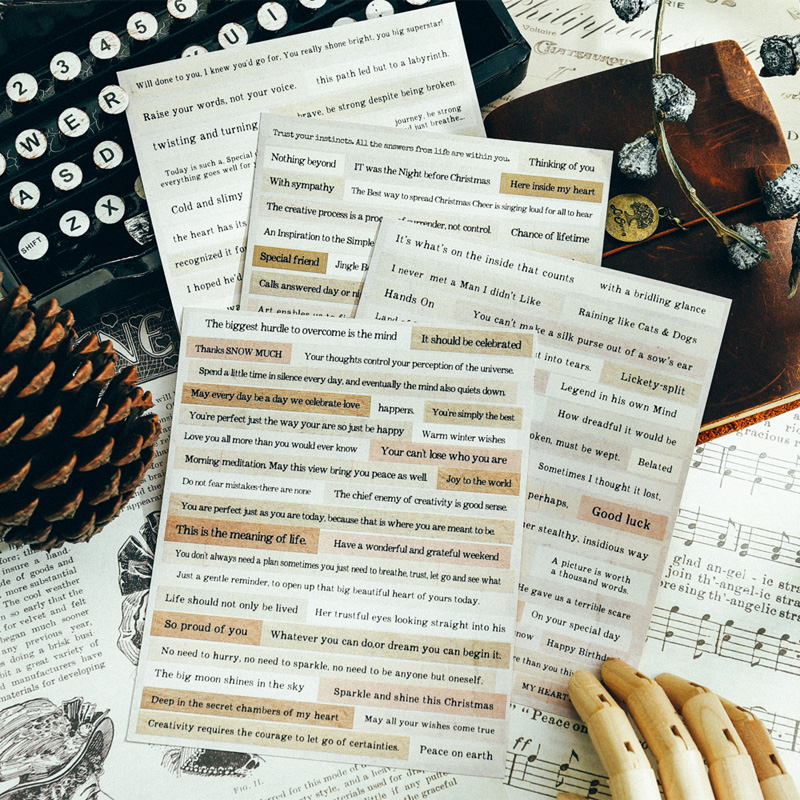 2 3 4 5 6
W E R U I
A S D
SHIFT Z X
Will done to you, I knew you'd go for, You really shone bright, you big superstar!
Raise your words, not your voice. this path led but to a labyrinth.
twisting and turning brave, be strong despite being broken.
journey, be strong
Today is such a. Special just breathe...
everything goes well for
Cold and slimy
the heart has its
recognized it fo
I hoped he'd
Trust your instincts. All the answers from life are within you.
Nothing beyond IT was the Night before Christmas Thinking of you
With sympathy The Best way to spread Christmas Cheer is singing loud for all to hear Here inside my heart
The creative process is a process of surrender, not control Chance of lifetime
An Inspiration to the Simple
Special friend Jingle B
Calls answered day or ni
Art enables us to fi
It's what's on the inside that counts with a bridling glance
I never met a Man I didn't Like Raining like Cats & Dogs
Hands On You can't make a silk purse out of a sow's ear
t into tears. Lickety-split
Legend in his own Mind
How dreadful it would be
oken, must be wept. Belated
Sometimes I thought it lost,
perhaps, Good luck
er stealthy, insidious way
A picture is worth
a thousand words.
He gave us a terrible scare
On your special day
now Happy Birthda
re than you thi
MY HEART
The biggest hurdle to overcome is the mind It should be celebrated
Thanks SNOW MUCH Your thoughts control your perception of the universe.
Spend a little time in silence every day, and eventually the mind also quiets down.
May every day be a day we celebrate love happens. You're simply the best
You're perfect just the way your are so just be happy Warm winter wishes
Love you all more than you would ever know Your can't lose who you are
Morning meditation. May this view bring you peace as well. Joy to the world
Do not fear mistakes-there are none The chief enemy of creativity is good sense.
You are perfect just as you are today, because that is where you are meant to be.
This is the meaning of life. Have a wonderful and grateful weekend
You don't always need a plan sometimes you just need to breathe, trust, let go and see what
Just a gentle reminder, to open up that big beautiful heart of yours today.
Life should not only be lived Her trustful eyes looking straight into his
So proud of you Whatever you can do,or dream you can begin it:
No need to hurry, no need to sparkle, no need to be anyone but oneself.
The big moon shines in the sky Sparkle and shine this Christmas
Deep in the secret chambers of my heart May all your wishes come true
Creativity requires the courage to let go of certainties. Peace on earth
glad an-gel - ic stra
join th'-angel-ic stra
ore sing th'-angelic stra
"Peace on
ff
FIG. 11.